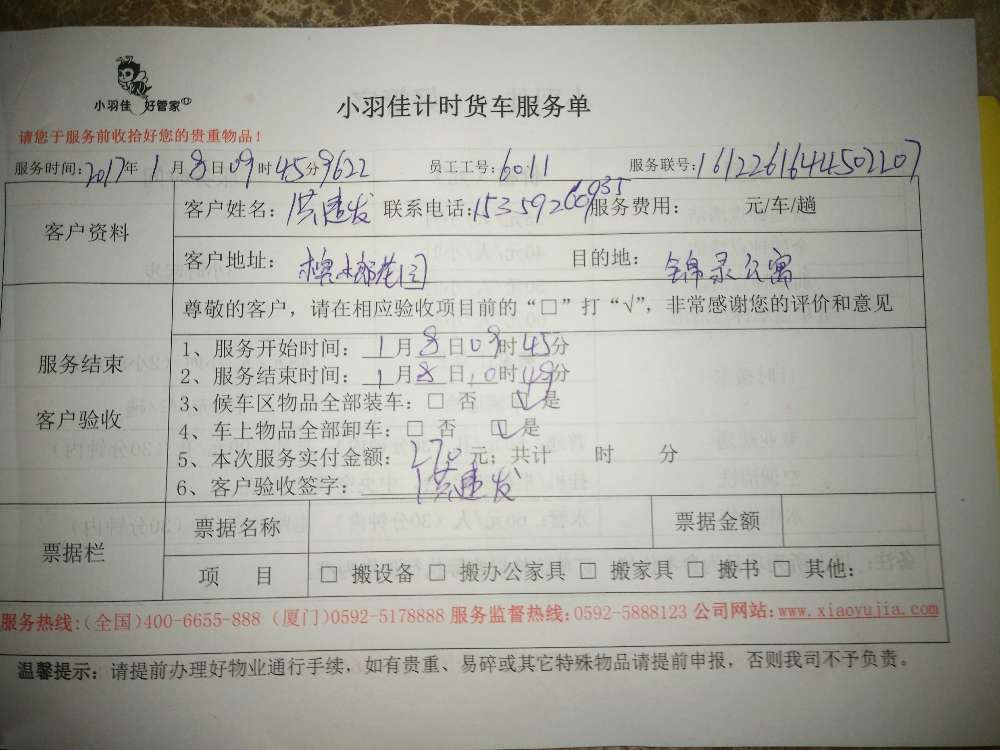 小羽佳 好管家
小羽佳计时货车服务单
请您于服务前收拾好您的贵重物品！
服务时间：2017年1月8日09时45分9622 员工工号：6011 服务联号：1612261644502207
客户资料
客户姓名：洪建发 联系电话：15359260935 服务费用： 元/车/趟
客户地址： 花园 目的地： 锦绿公寓
尊敬的客户，请在相应验收项目前的“□”打“√”，非常感谢您的评价和意见
服务结束
客户验收
1、服务开始时间：1月8日09时45分
2、服务结束时间：1月8日10时49分
3、候车区物品全部装车：□ 否 ☑是
4、车上物品全部卸车：□ 否 ☑是
5、本次服务实付金额：270元；共计 时 分
6、客户验收签字：洪建发
票据栏
票据名称 票据金额
项 目 □ 搬设备 □ 搬办公家具 □ 搬家具 □ 搬书 □ 其他：
服务热线：(全国)400-6655-888 (厦门)0592-5178888 服务监督热线：0592-5888123 公司网站：www.xiaoyujia.com
温馨提示：请提前办理好物业通行手续，如有贵重、易碎或其它特殊物品请提前申报，否则我司不予负责。